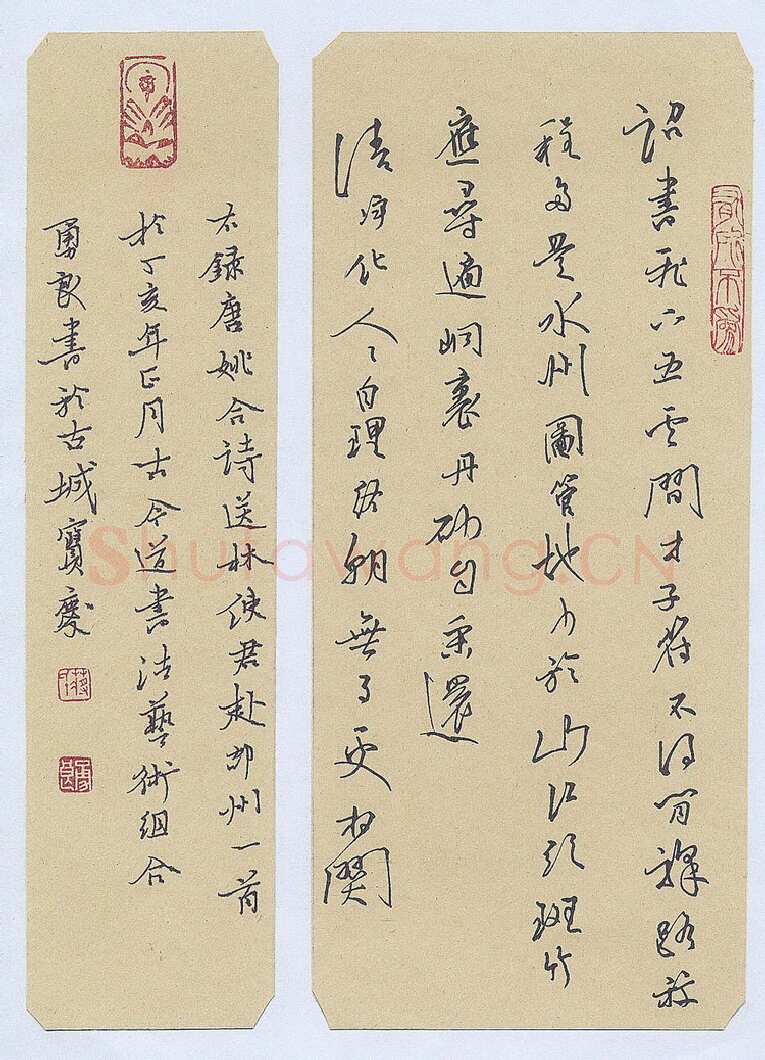 詔書飛下五云間才子符不得閒驛路算
程多是水州圖管地少於山江頭斑竹
應尋遍峒裏丹砂自采還
清淨化人々自理終朝無事更相關
右錄唐姚合詩送林使君赴邵州一首
於丁亥年正月古今道書法藝術組合
勇良書於古城寶慶
Shufawang.CN